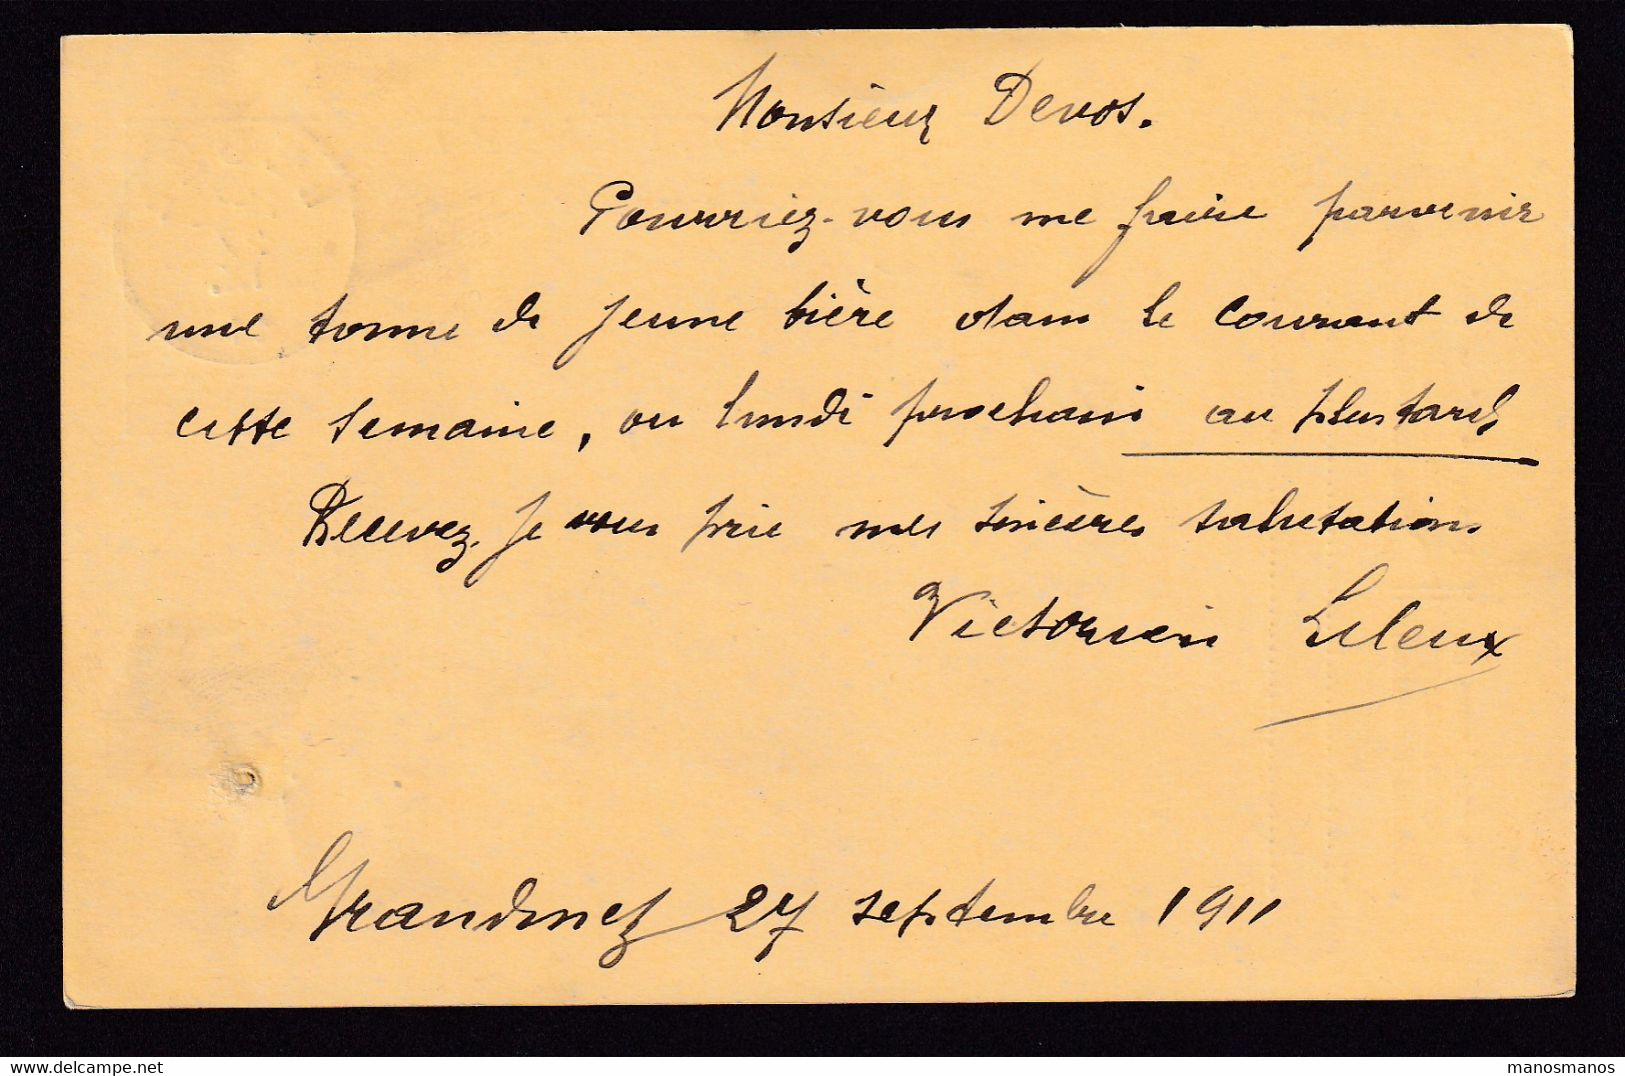 Monsieur Devos.
Pourriez-vous me faire parvenir
une tonne de jeune bière dans le courant de
cette semaine, ou lundi prochain au plus tard,
Recevez, je vous prie mes sincères salutations
Victorien Leleux
Grandmetz 27 septembre 1911
manosmanos